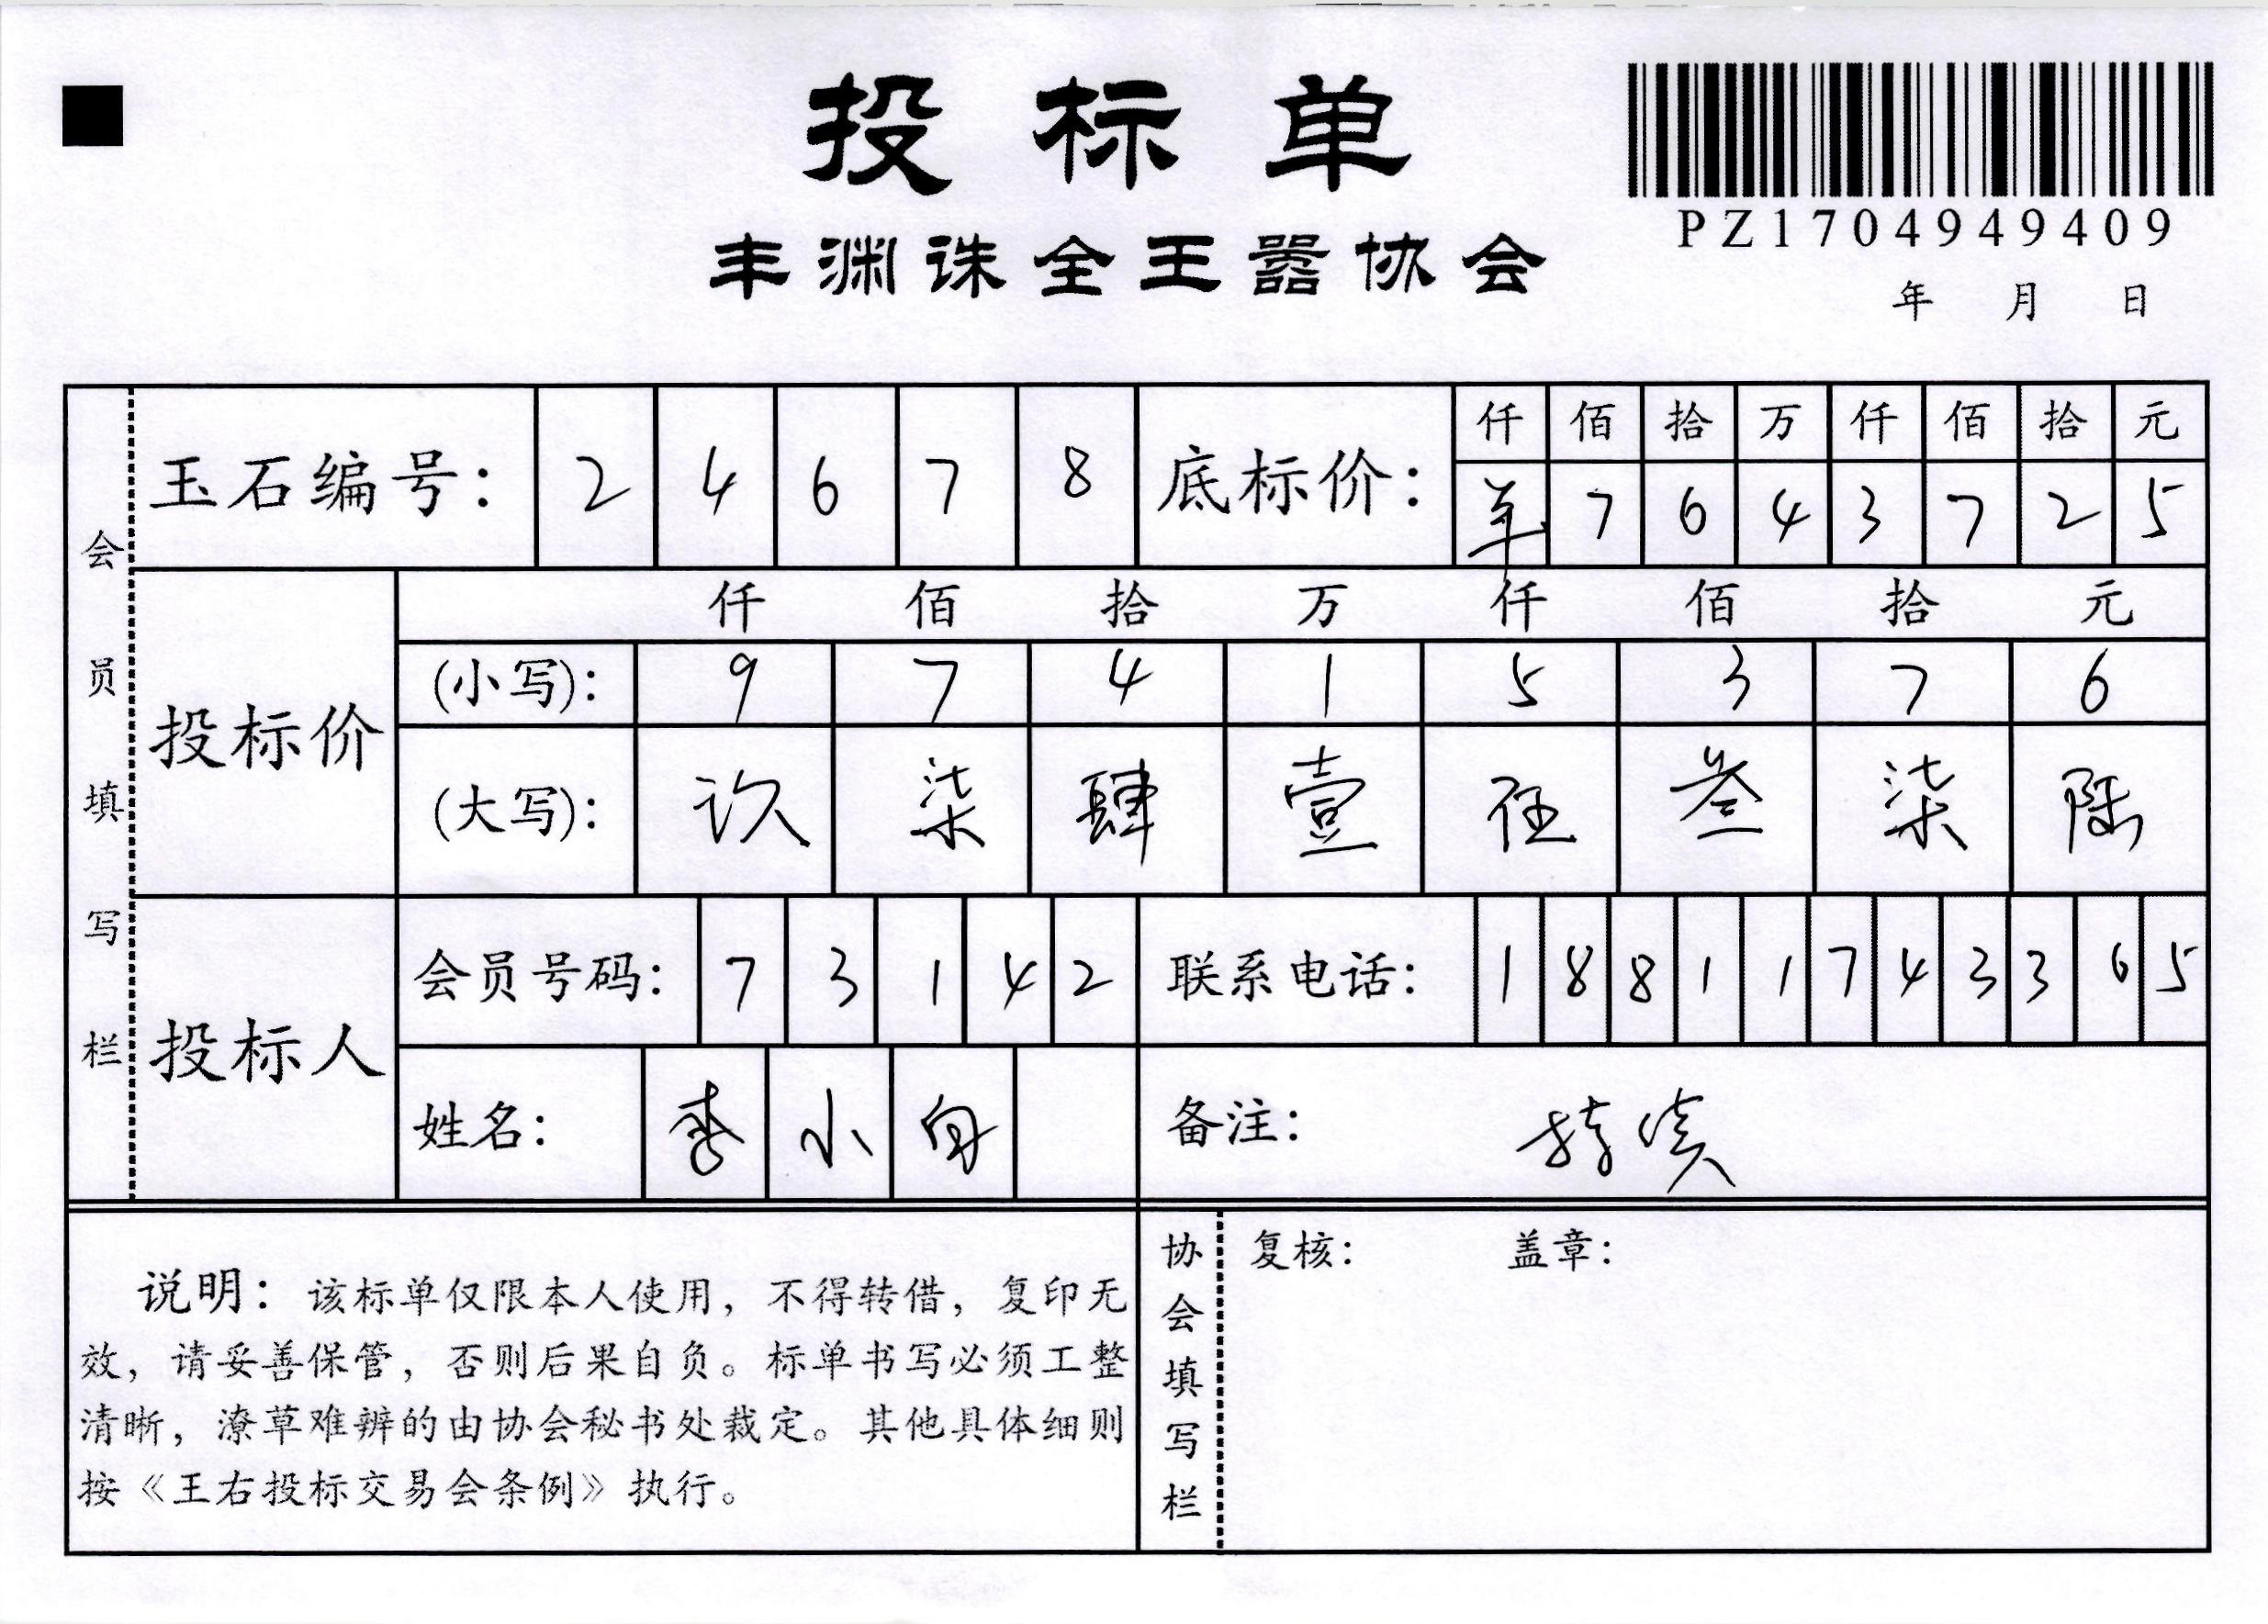 投标单
PZ1704949409
丰渊诛全王嚣协会
年 月 日
会员填写栏
玉石编号: 2 4 6 7 8
底标价: 仟 佰 拾 万 仟 佰 拾 元
羊 7 6 4 3 7 2 5
投标价
仟 佰 拾 万 仟 佰 拾 元
(小写): 9 7 4 1 5 3 7 6
(大写): 玖 柒 肆 壹 伍 叁 柒 陆
投标人
会员号码: 7 3 1 4 2
联系电话: 1 8 8 1 1 7 4 3 3 6 5
姓名: 李 小
备注:
说明: 该标单仅限本人使用, 不得转借, 复印无
效, 请妥善保管, 否则后果自负。标单书写必须工整
清晰, 潦草难辨的由协会秘书处裁定。其他具体细则
按《王右投标交易会条例》执行。
协会填写栏
复核: 盖章: